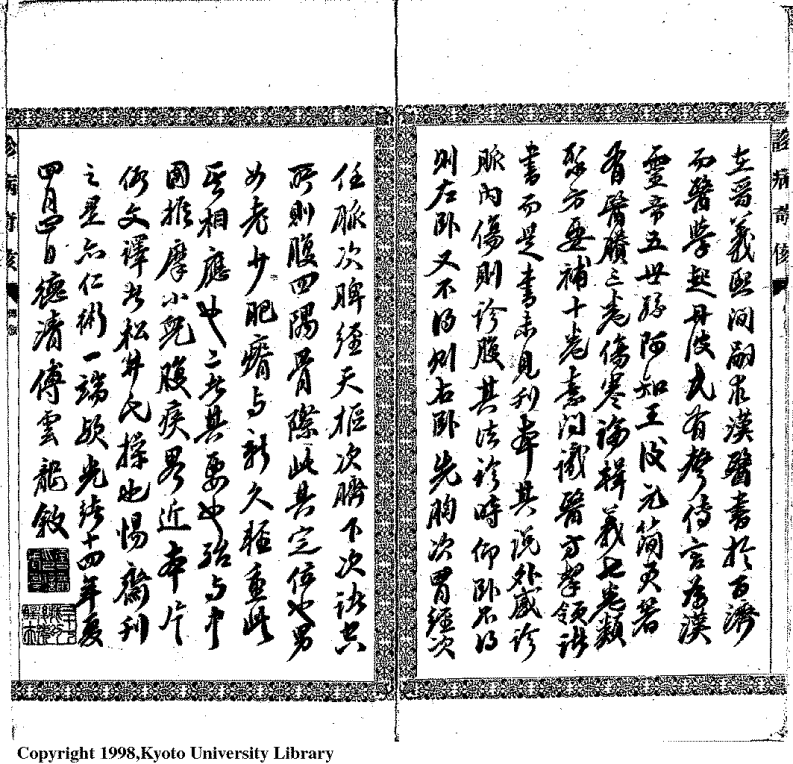 在晉義熙間嗣求漢醫書於百濟
而醫學起丹波氏有聲侍言為漢
靈帝五世孫阿知王後元簡更著
有醫賸三卷傷寒論輯義七卷類
聚方要補十卷素問識醫方挈領諸
書而是書未見刊本其說外感診
脈內傷則診腹其法診時仰臥不得
則左臥又不得則右臥先胸次胃經次
任脈次脾經天樞次臍下次諸穴
所則腹四隅骨際此其定位也男
女老少肥瘠與新久輕重皆
相應也此其要也
國推摩小兒腹疾畧近本片
仮文譯者松井氏操也惕齋刊
之是亦仁術一端歟光緒十四年夏
四月四日德清傅雲龍敘
診病奇侅
Copyright 1998,Kyoto University Library